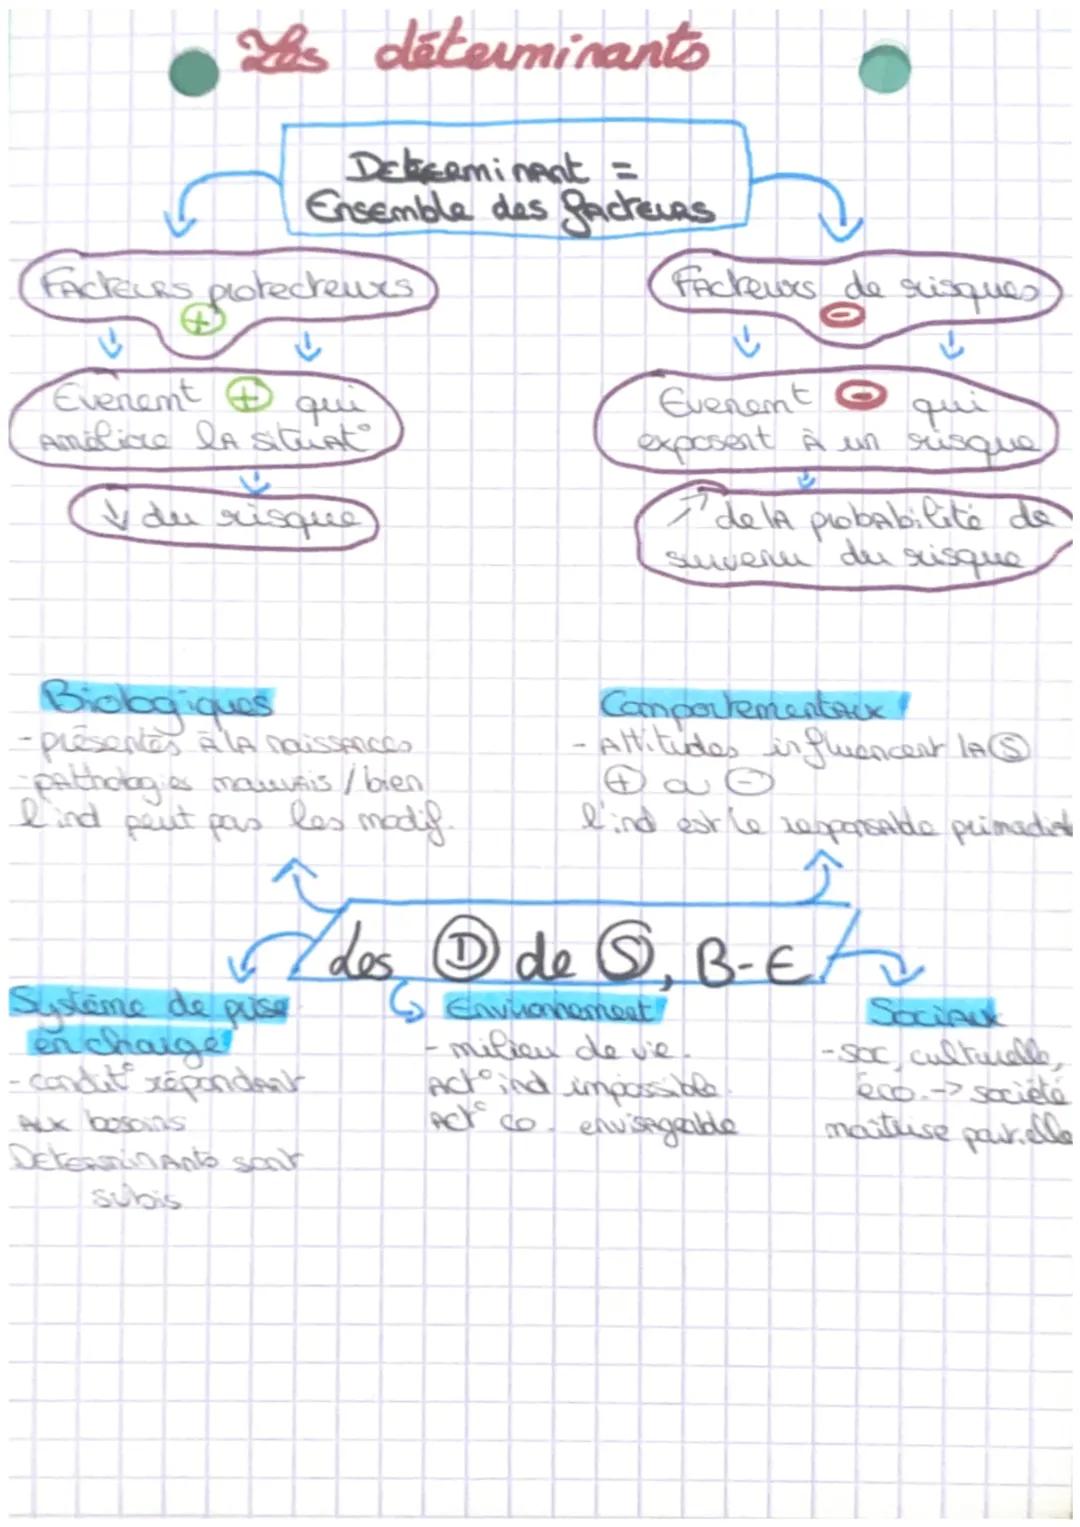 Les déterminants
Determinant =
Ensemble des facteurs
Facteurs protecteurs
+
Facteurs de risques
-
Evenemt + qui
améliore la situat°
Evenemt - qui
exposent à un risque
↓ du risque
↗ de la probabilité de
survenu du risque
Biologiques
- présentes à la naissances
- pathologies mauvais / bien
l'ind peut pas les modif.
Comportementaux
- Attitudes influencent la S
+ ou -
l'ind est le responsable primadial
les D de S, B-E
Système de prise
en charge
- condit° répondant
aux besoins
Determinants sont
subis
Environnement
- milieu de vie.
Act° ind impossible.
Act° co. envisageable
Sociaux
- soc, culturelle,
éco. -> société
maitrise par elle